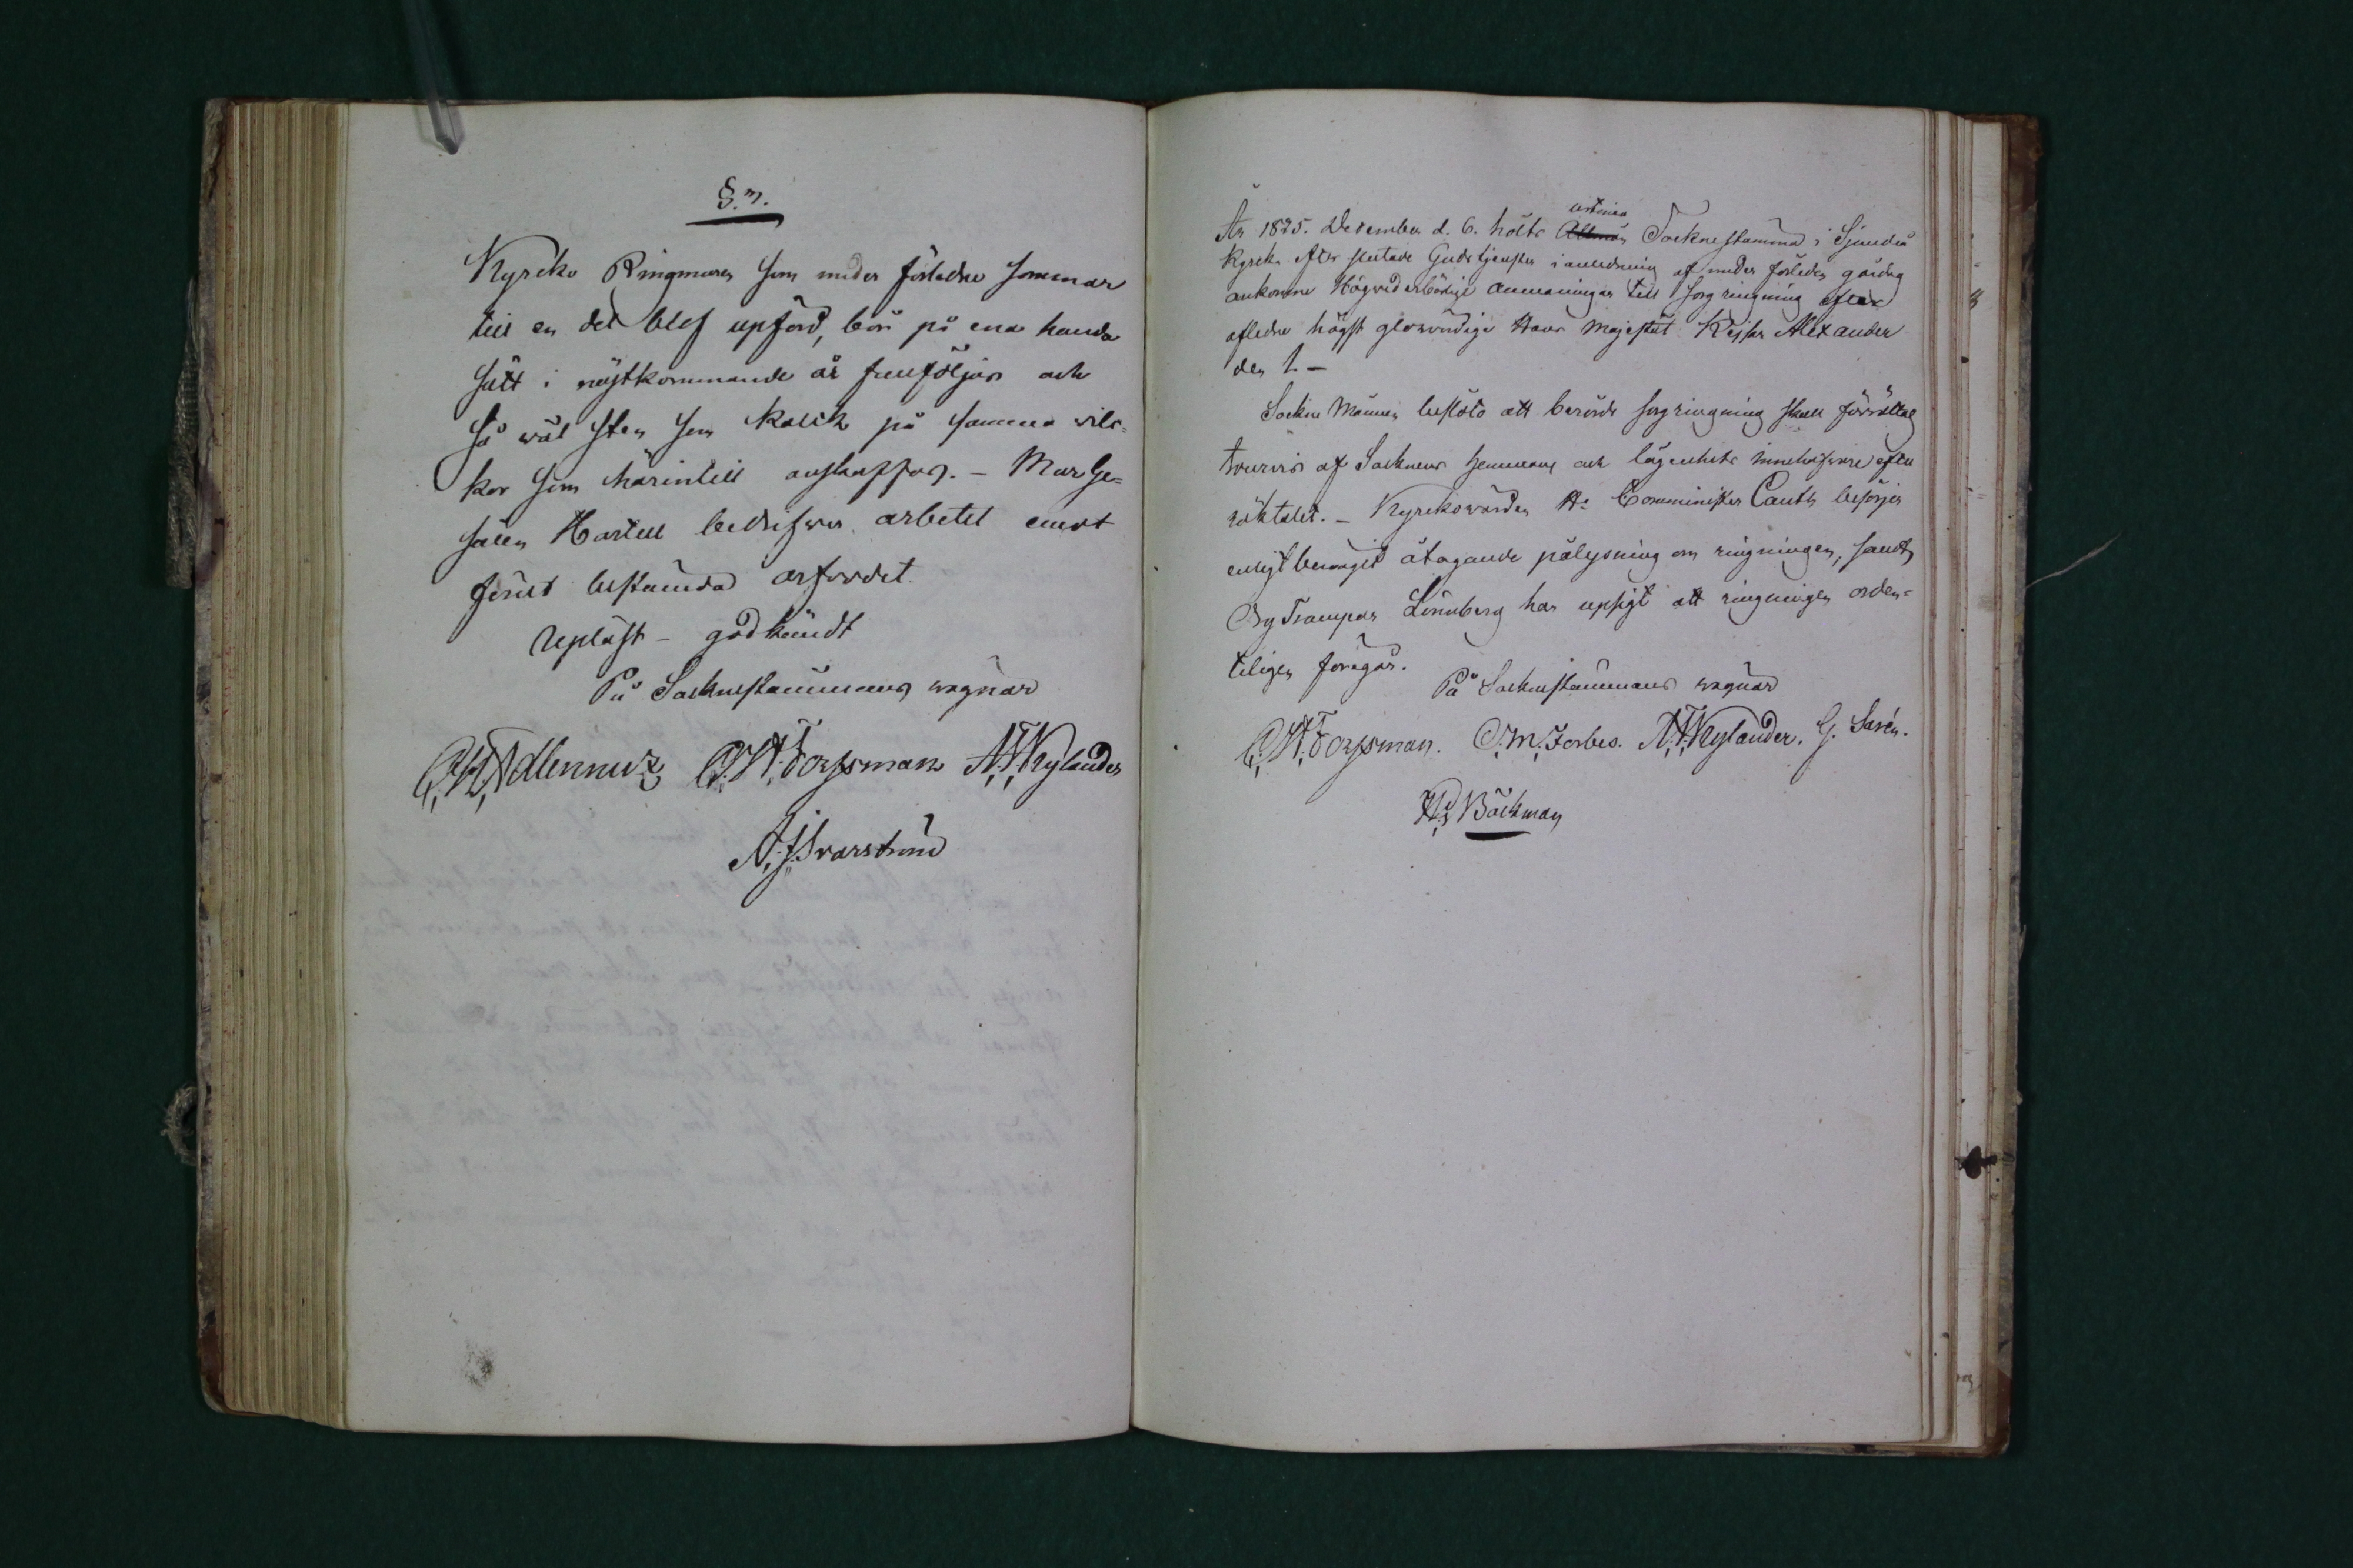 §. 7.
Kyrcko Ringmuren som under förledne sommar
till en del blef upförd, bör på ena handa
sätt i nästkommande år fullföljas och
så wäl sten som kalck på samma wil-
kor som härintill anskaffas. - Mur Ge-
sällen Hartell bedrifwer arbetet emot
förut bestämda arfvodet.
Upläst - godkändt
På Socknestämmans wägnar
C. H. Adlercreutz C. H. Forssman A. F. Nylander
A. J. Svarström
År 1825. December d. 6. hölts Allmän urtima Socknestämma i Sjundeå
Kyrcka efter slutade Gudstjensten i anledning af under förleden gårdag
ankomne Högvederbörlige anmaningar till sorgringning efter
afledne högst glorvördige Hans Majestät Kejsar Alexander
den 1. -
Sockne Männen beslöto att berörde sorgringning skall förrättas
tourvis af Socknens hemmans och lägenhets innehafware efter
röktalet. - Kyrckowärden Hr Comminister Canth besörjer
enligt benäget åtagande pålysning om ringningen, samt
Org Trampar Lönnberg har upsigt att ringningen orden-
teligenföregår.
På Socknestämmans wägnar
C. H. Forssman. C. M. Forbes. A. F. Nylander. G. Sarén.
Hd Böckman